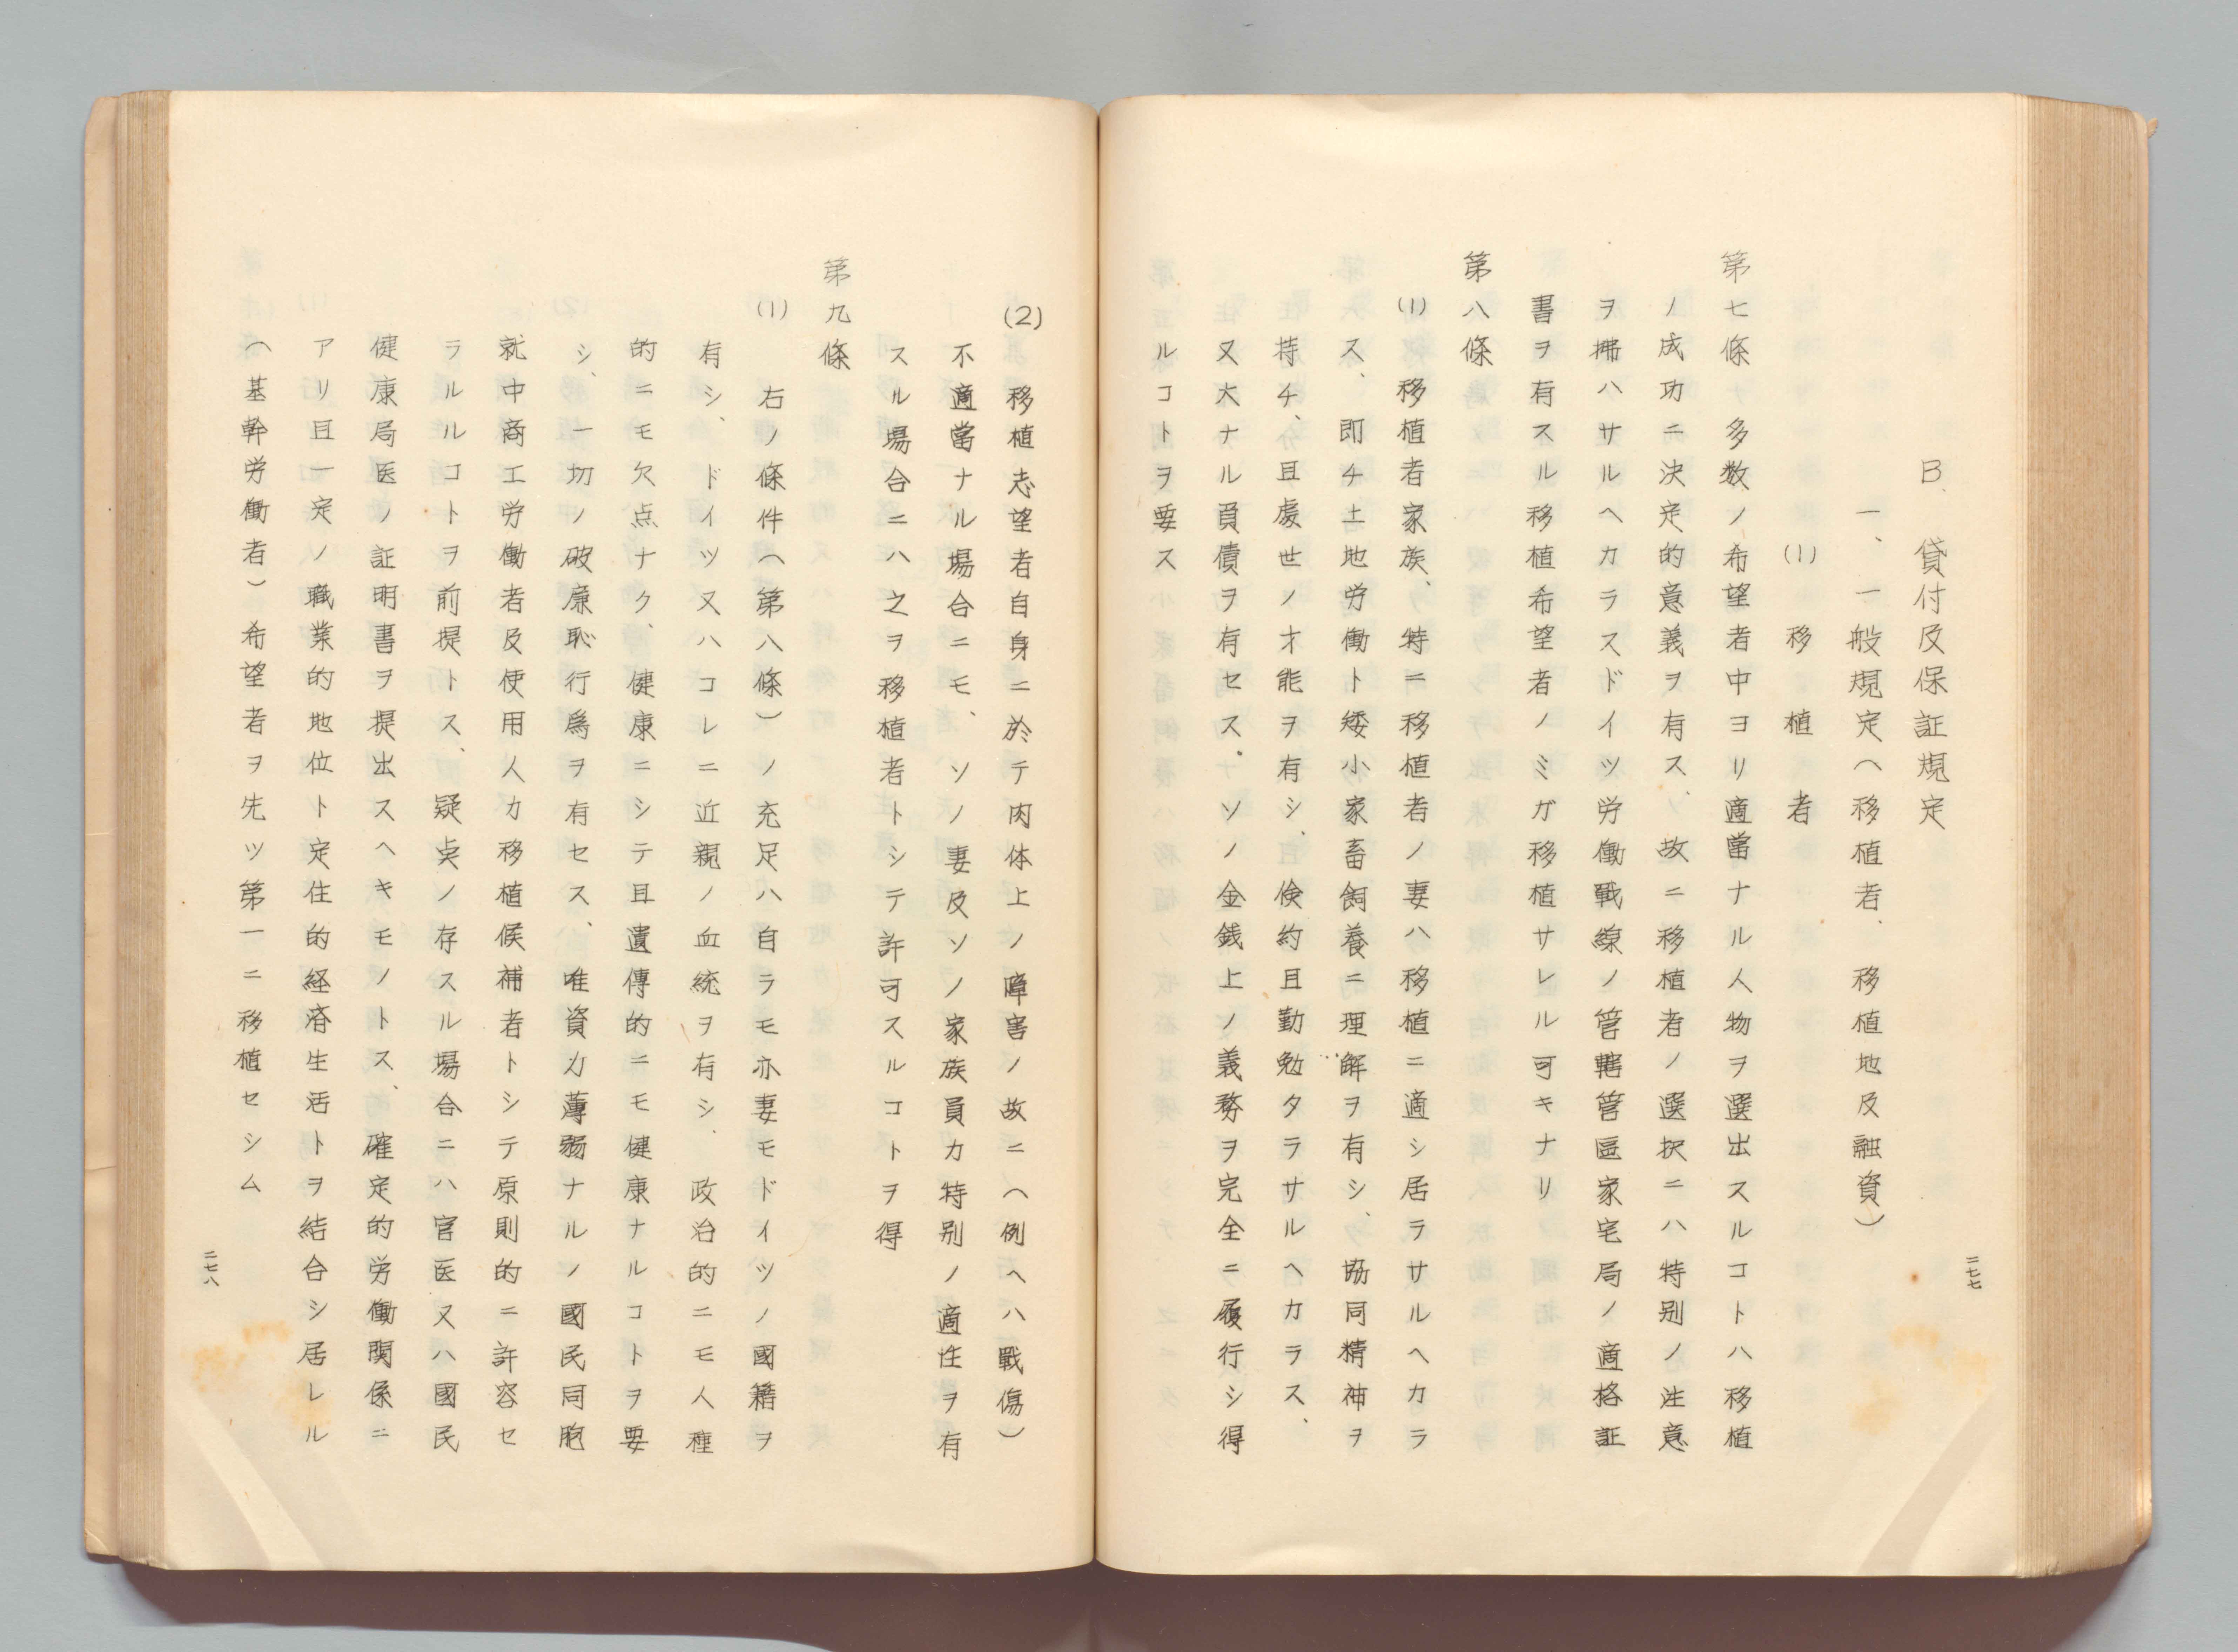 B、貸付及保証規定
一、一般規定（移植者、移植地及融資）
(1) 移植者
第七條 多数ノ希望者中ヨリ適當ナル人物ヲ選出スルコトハ移植
ノ成功ニ決定的意義ヲ有ス、故ニ移植者ノ選択ニハ特別ノ注意
ヲ拂ハサルヘカラスドイツ労働戰線ノ管轄管區家宅局ノ適格証
書ヲ有スル移植希望者ノミガ移植サレル可キナリ
第八條
(1) 移植者家族、特ニ移植者ノ妻ハ移植ニ適シ居ラサルヘカラ
ス、即チ土地労働ト矮小家畜飼養ニ理解ヲ有シ、協同精神ヲ
持チ、且處世ノ才能ヲ有シ、倹約且勤勉タラサルヘカラス、
又大ナル負債ヲ有セス、ソノ金銭上ノ義務ヲ完全ニ履行シ得
ルコトヲ要ス
二七七
(2) 移植志望者自身ニ於テ肉体上ノ障害ノ故ニ（例ヘハ戰傷）
不適當ナル場合ニモ、ソノ妻及ソノ家族員カ特別ノ適性ヲ有
スル場合ニハ之ヲ移植者トシテ許可スルコトヲ得
第九條
(1) 右ノ條件（第八條）ノ充足ハ自ラモ亦妻モドイツノ國籍ヲ
有シ、ドイツ又ハコレニ近親ノ血統ヲ有シ、政治的ニモ人種
的ニモ欠点ナク、健康ニシテ且遺傳的ニモ健康ナルコトヲ要
シ、一切ノ破廉恥行爲ヲ有セス、唯資力薄弱ナルノ國民同胞
就中商工労働者及使用人カ移植候補者トシテ原則的ニ許容セ
ラルルコトヲ前提トス、疑点ノ存スル場合ニハ官医又ハ國民
健康局医ノ証明書ヲ提出スヘキモノトス、確定的労働関係ニ
アリ且一定ノ職業的地位ト定住的経済生活トヲ結合シ居レル
（基幹労働者）希望者ヲ先ツ第一ニ移植セシム
二七八